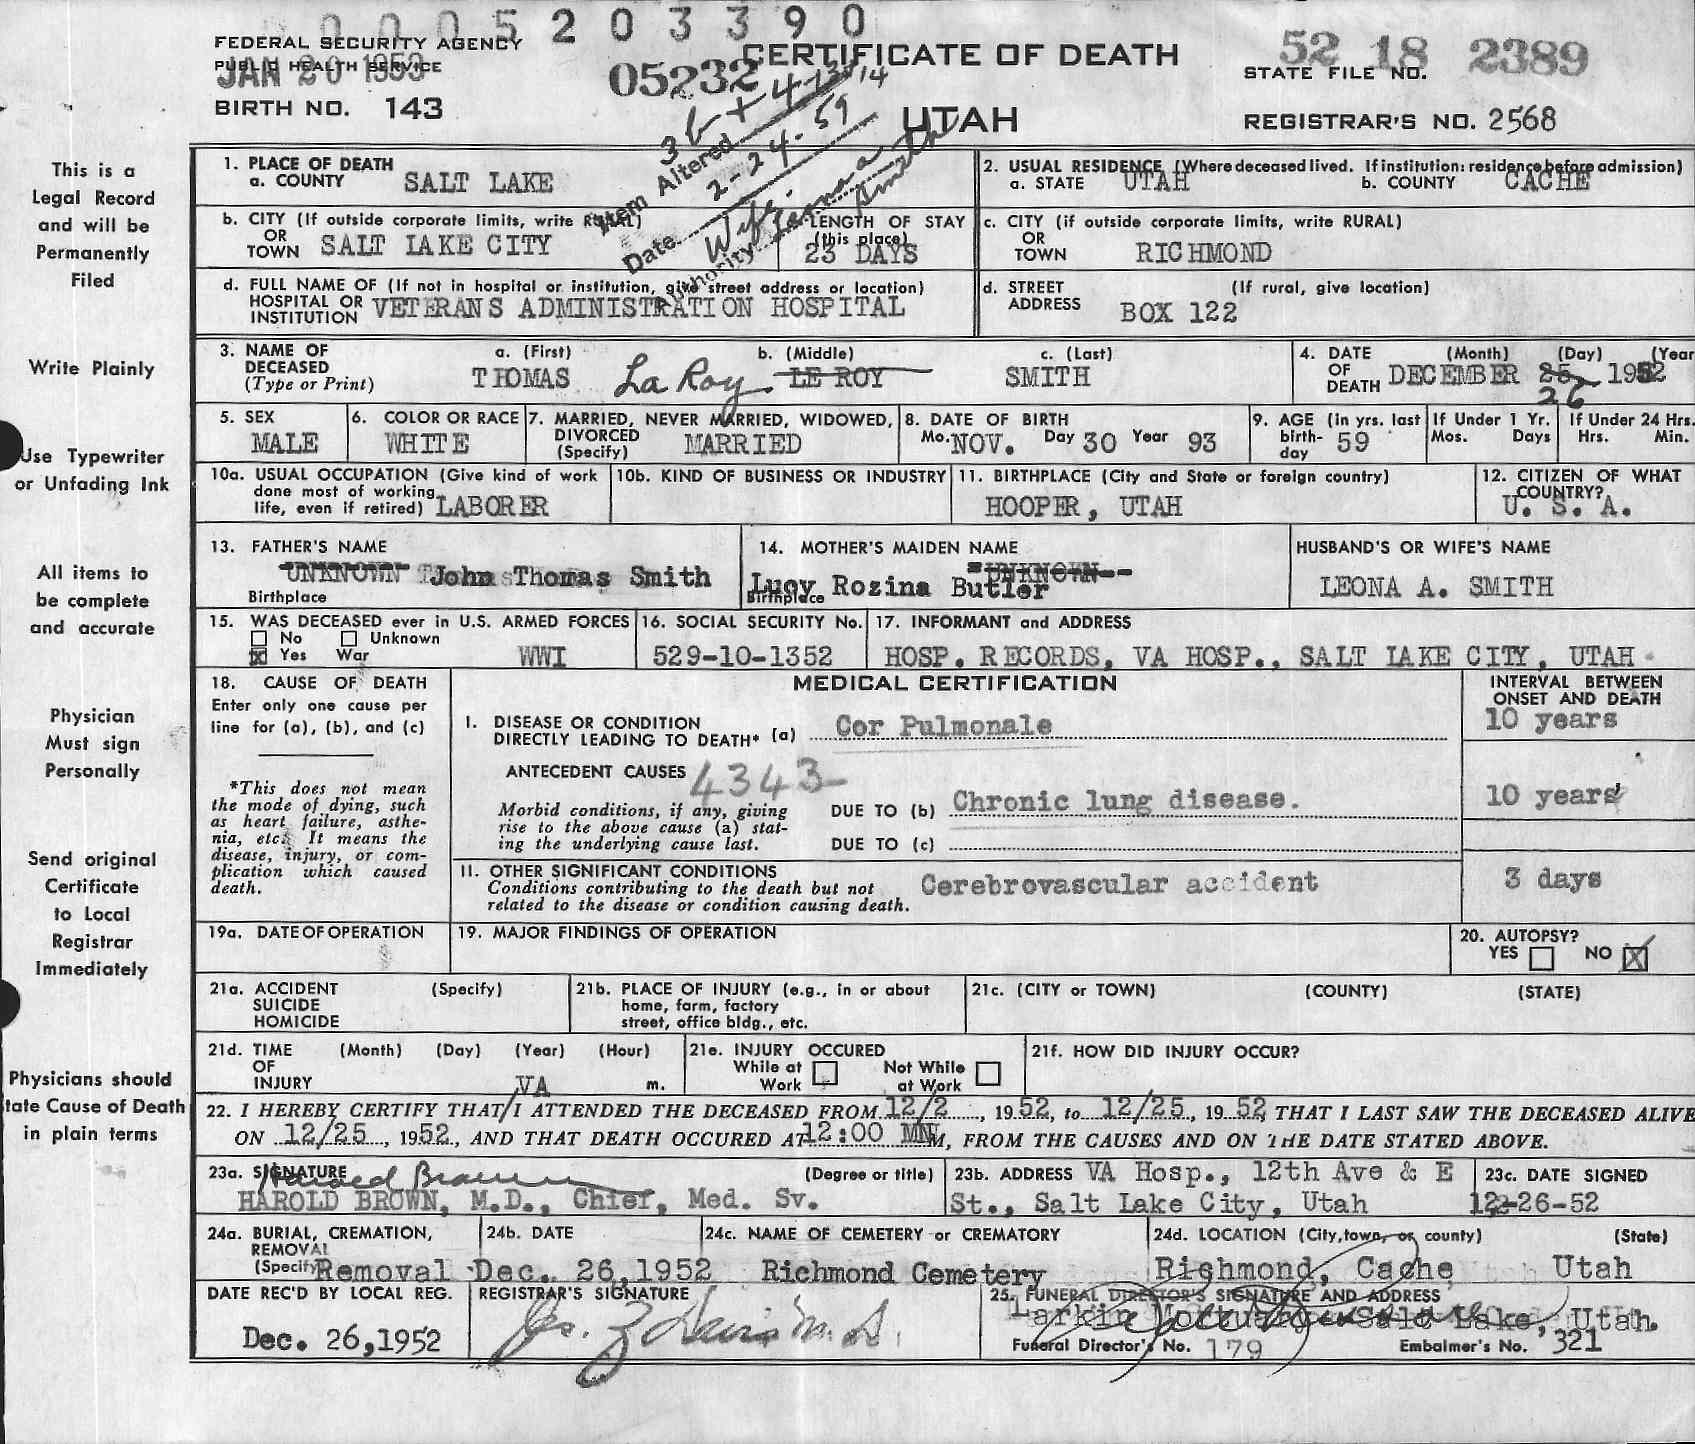 0005203390
FEDERAL SECURITY AGENCY
PUBLIC HEALTH SERVICE
JAN 20 1953
BIRTH NO. 143
05232
CERTIFICATE OF DEATH
UTAH
52 18 2389
STATE FILE NO.
REGISTRAR'S NO. 2568
Item Altered 3b + 4-13 14
Date 2-24-59
Authority Wife: Leona Smith
This is a
Legal Record
and will be
Permanently
Filed
1. PLACE OF DEATH
a. COUNTY SALT LAKE
2. USUAL RESIDENCE (Where deceased lived. If institution: residence before admission)
a. STATE UTAH b. COUNTY CACHE
b. CITY (If outside corporate limits, write RURAL)
OR
TOWN SALT LAKE CITY
LENGTH OF STAY
(this place)
23 DAYS
c. CITY (if outside corporate limits, write RURAL)
OR
TOWN RICHMOND
d. FULL NAME OF (If not in hospital or institution, give street address or location)
HOSPITAL OR
INSTITUTION VETERANS ADMINISTRATION HOSPITAL
d. STREET (If rural, give location)
ADDRESS BOX 122
Write Plainly
3. NAME OF a. (First) b. (Middle) c. (Last)
DECEASED
(Type or Print) THOMAS La Roy LE ROY SMITH
4. DATE (Month) (Day) (Year
OF
DEATH DECEMBER 25 1952
26
Use Typewriter
or Unfading Ink
5. SEX
MALE
6. COLOR OR RACE
WHITE
7. MARRIED, NEVER MARRIED, WIDOWED,
DIVORCED
(Specify) MARRIED
8. DATE OF BIRTH
Mo. NOV. Day 30 Year 93
9. AGE (in yrs. last
birth-
day 59
If Under 1 Yr.
Mos. Days
If Under 24 Hrs.
Hrs. Min.
10a. USUAL OCCUPATION (Give kind of work
done most of working
life, even if retired) LABORER
10b. KIND OF BUSINESS OR INDUSTRY
11. BIRTHPLACE (City and State or foreign country)
HOOPER, UTAH
12. CITIZEN OF WHAT
COUNTRY?
U. S. A.
All items to
be complete
and accurate
13. FATHER'S NAME
UNKNOWN John Thomas Smith
Birthplace
14. MOTHER'S MAIDEN NAME
UNKNOWN
Lucy Rozina Butler
Birthplace
HUSBAND'S OR WIFE'S NAME
LEONA A. SMITH
15. WAS DECEASED ever in U.S. ARMED FORCES
No Unknown
Yes War WWI
16. SOCIAL SECURITY No.
529-10-1352
17. INFORMANT and ADDRESS
HOSP. RECORDS, VA HOSP., SALT LAKE CITY, UTAH
Physician
Must sign
Personally
Send original
Certificate
to Local
Registrar
Immediately
18. CAUSE OF DEATH
Enter only one cause per
line for (a), (b), and (c)
*This does not mean
the mode of dying, such
as heart failure, asthe-
nia, etc. It means the
disease, injury, or com-
plication which caused
death.
MEDICAL CERTIFICATION
INTERVAL BETWEEN
ONSET AND DEATH
I. DISEASE OR CONDITION
DIRECTLY LEADING TO DEATH* (a) Cor Pulmonale 10 years
ANTECEDENT CAUSES 4343
Morbid conditions, if any, giving
rise to the above cause (a) stat-
ing the underlying cause last.
DUE TO (b) Chronic lung disease. 10 years
DUE TO (c)
II. OTHER SIGNIFICANT CONDITIONS
Conditions contributing to the death but not
related to the disease or condition causing death.
Cerebrovascular accident 3 days
19a. DATE OF OPERATION
19. MAJOR FINDINGS OF OPERATION
20. AUTOPSY?
YES NO X
21a. ACCIDENT (Specify)
SUICIDE
HOMICIDE
21b. PLACE OF INJURY (e.g., in or about
home, farm, factory
street, office bldg., etc.
21c. (CITY or TOWN) (COUNTY) (STATE)
Physicians should
tate Cause of Death
in plain terms
21d. TIME (Month) (Day) (Year) (Hour)
OF
INJURY m.
21e. INJURY OCCURED
While at Not While
Work at Work
21f. HOW DID INJURY OCCUR?
VA
22. I HEREBY CERTIFY THAT/I ATTENDED THE DECEASED FROM 12/2, 1952, to 12/25, 1952, THAT I LAST SAW THE DECEASED ALIVE
ON 12/25, 1952, AND THAT DEATH OCCURED AT 12:00 MN M, FROM THE CAUSES AND ON THE DATE STATED ABOVE.
23a. SIGNATURE (Degree or title)
Harold Brown
HAROLD BROWN, M.D., Chief, Med. Sv.
23b. ADDRESS VA Hosp., 12th Ave & E
St., Salt Lake City, Utah
23c. DATE SIGNED
12-26-52
24a. BURIAL, CREMATION,
REMOVAL
(Specify) Removal
24b. DATE
Dec. 26, 1952
24c. NAME OF CEMETERY or CREMATORY
Richmond Cemetery
24d. LOCATION (City, town, or county) (State)
Richmond, Cache Utah
DATE REC'D BY LOCAL REG.
Dec. 26, 1952
REGISTRAR'S SIGNATURE
25. FUNERAL DIRECTOR'S SIGNATURE AND ADDRESS
Larkin Mortuary Salt Lake, Utah.
Funeral Director's No. 179 Embalmer's No. 321